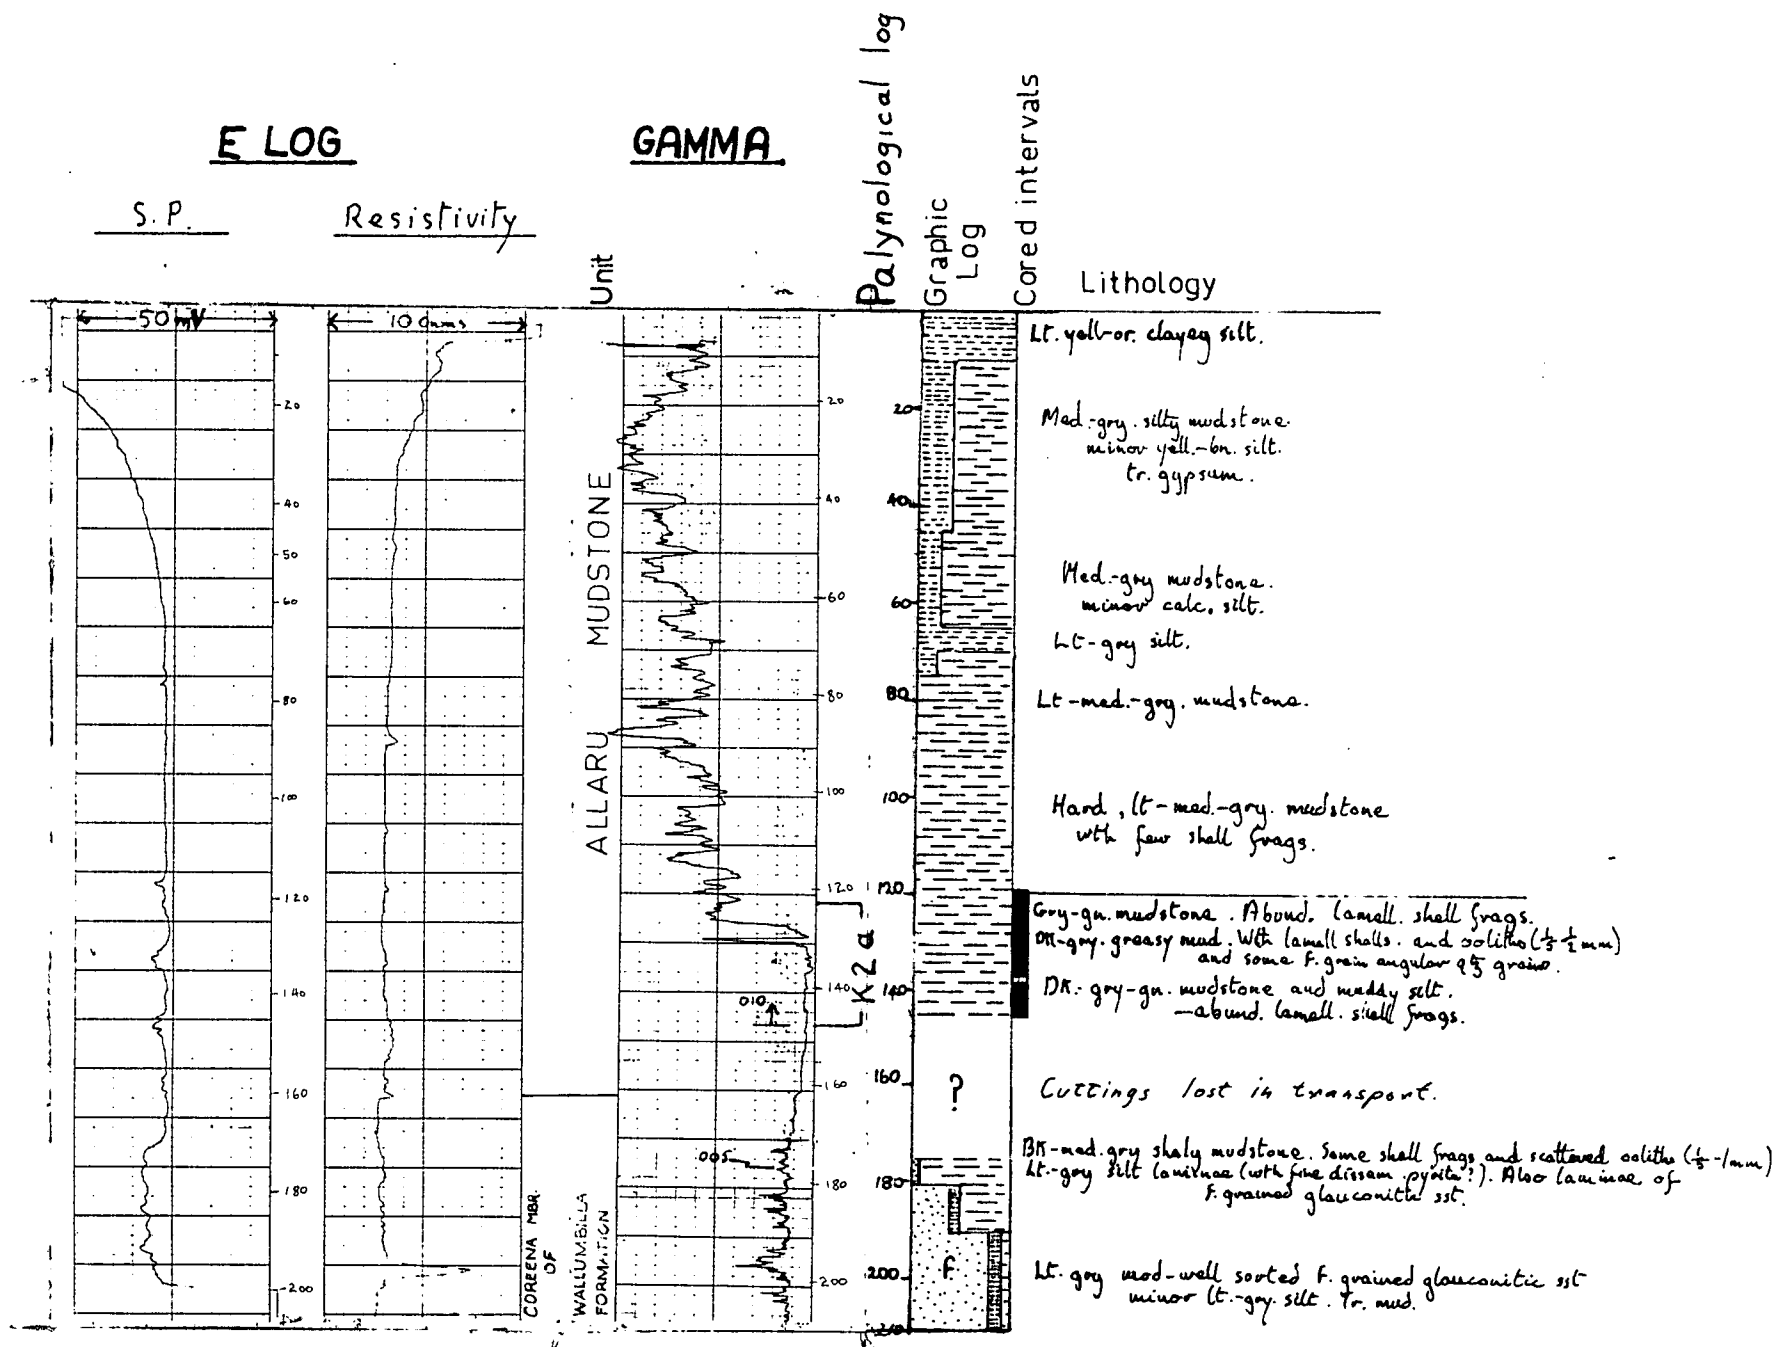 E LOG
GAMMA
Palynological log
Graphic
Log
Cored intervals
S.P.
Resistivity
Unit
Lithology
50 mV
10 Ohms
20
40
50
60
80
100
120
140
160
180
200
ALLARU MUDSTONE
COREENA MBR.
OF
WALLUMBILLA
FORMATION
20
40
60
80
100
120
140
160
180
200
010
005
K2a
20
40
60
80
100
120
140
160
180
200
210
?
F
Lt. yell-or. clayey silt.
Med.-gry. silty mudstone.
minor yell.-bn. silt.
tr. gypsum.
Med.-gry mudstone.
minor calc. silt.
Lt-gry silt.
Lt-med.-gry. mudstone.
Hard, lt-med.-gry. mudstone
wth few shell frags.
Gry-gn. mudstone. Abund. lamell. shell frags.
DK-gry. greasy mud. Wth lamell shells. and ooliths (1/5-1/2 mm)
and some F. grain angular qtz grains.
DK.-gry-gn. mudstone and muddy silt.
—abund. lamell. shell frags.
Cuttings lost in transport.
DK-med.gry shaly mudstone. Some shell frags and scattered ooliths (1/5-1mm)
Lt.-gry silt laminae (wth fine dissem. pyrite?). Also laminae of
F. grained glauconitic sst.
Lt. gry mod-well sorted F. grained glauconitic sst
minor lt.-gry. silt. Tr. mud.